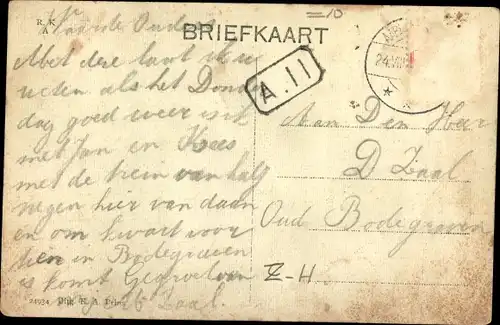 R. K.
A
=10
BRIEFKAART
Waarde Ouders
Met deze laat ik u
weten als het Donder
dag goed weer is ik
met Jan en Kees
met de trein van half
negen hier van daan
en om kwart voor
tien in Bodegraven
is komt Gegroet van
Zaal.
A.11
24.VII
Aan Den Heer
D Zaal
Oud Bodegraven
Z-H.
24934 Uitg. R. A.